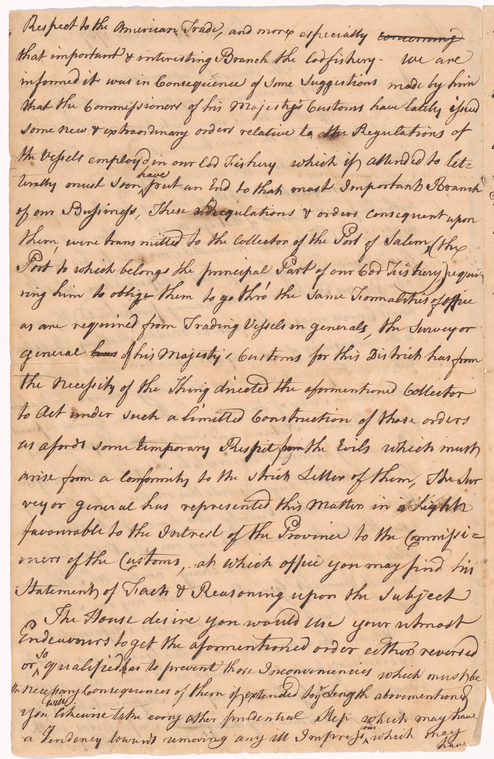 Respect to the American Trade, and more especially concerning
that important & interesting Branch the Codfishery - We are
informed it was in Consequence of Some Suggestions made by him
that the Commissioners of his Majesty's Customs have lately issued
Some new & extraordinary orders relative to the Regulations of
the Vessels employ'd in our Cod Fishery which if attended to let=
terally must soon have put an End to that most Important Branch
of our Bussiness, These Regulations & orders consequent upon
them were transmitted to the Collector of the Port of Salem (the
Port to which belongs the principal Part of our Cod Fishery) requi=
ring him to oblige them to go thro' the Same Formalities of office
as are required from Trading Vessels in general, the Surveyor
general of his Majesty's Customs for this District has from
the Necessity of the Thing directed the aformentioned Collector
to Act under such a Limitted Construction of those orders
as afords some temporary Respit from the Evils which must
arise from a conformity to the strict Letter of them, The Sur
veyor general has represented this Matter in a Light
favourable to the Interest of the Province to the Commissi=
oners of the Customs, at which office you may find his
Statement of Facts & Reasoning upon the Subject
The House desire you would use your utmost
Endeavours to get the aformentioned order either reversed
or so qualified as to prevent those Inconveniencies which must be
the necessary Consequences of them if extended the Length abovementioned
you will likewise take every other prudential Step which may have
a Tendency towards removing any ill Impressions which may
have